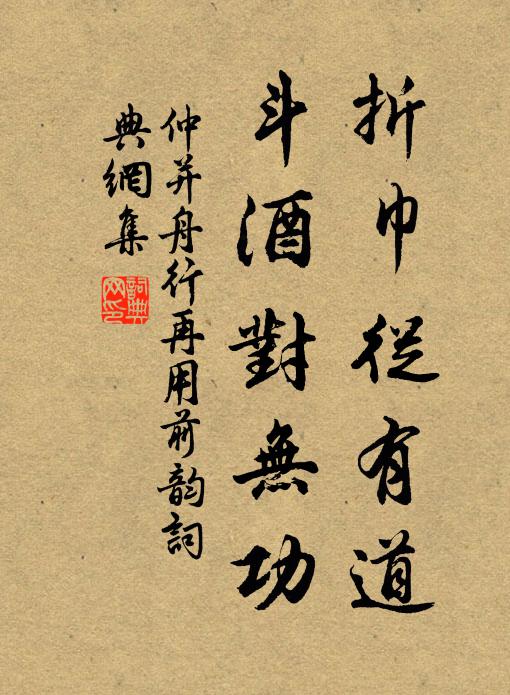 折巾從有道
斗酒對無功
仲并舟行再用前韵詞
典網集
詞典網印